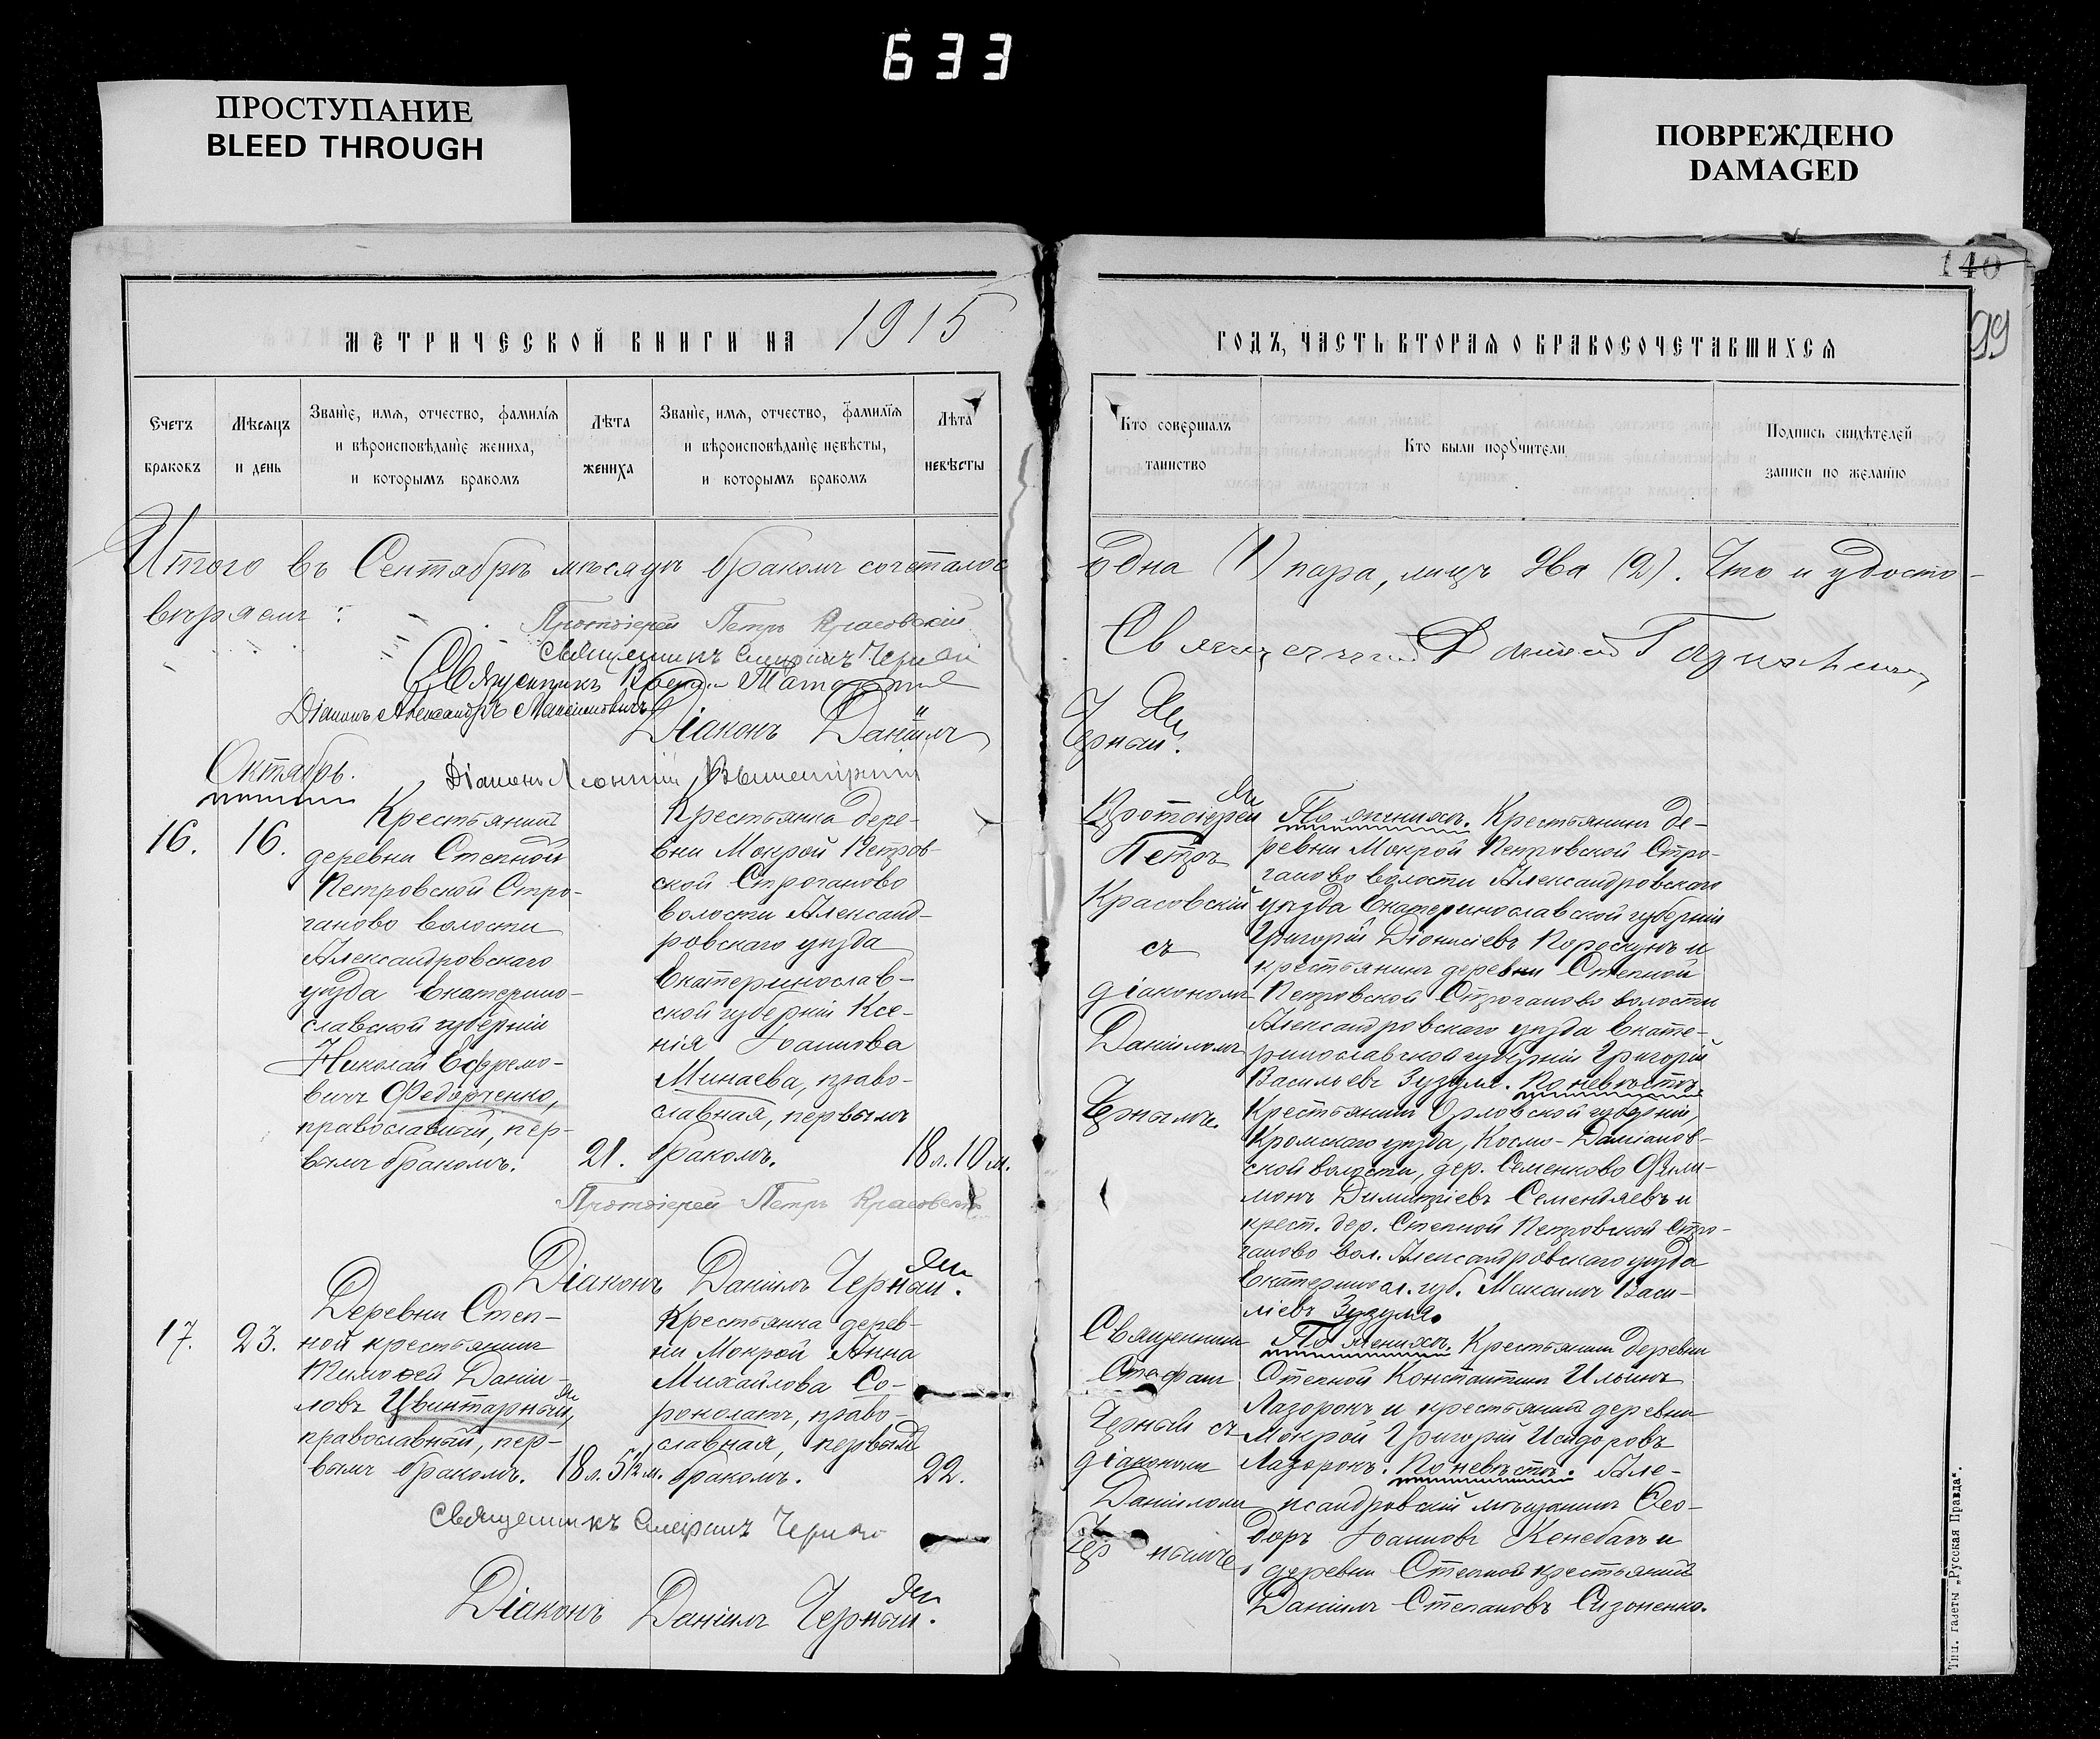 633
ПРОСТУПАНИЕ
BLEED THROUGH
ПОВРЕЖДЕНО
DAMAGED
140
99
МЕТРИЧЕСКОЙ КНИГИ НА 1915
ГОДЪ, ЧАСТЬ ВТОРАЯ О БРАКОСОЧЕТАВШИХСЯ
Счетъ браковъ
Мѣсяцъ и день
Званіе, имя, отчество, фамилія и вѣроисповѣданіе жениха, и которымъ бракомъ
Лѣта жениха
Званіе, имя, отчество, фамилія и вѣроисповѣданіе невѣсты, и которымъ бракомъ
Лѣта невѣсты
Кто совершалъ таинство
Кто были поручители
Подпись свидѣтелей записи по желанію
Итого въ Сентябрѣ мѣсяцѣ бракомъ сочеталось
одна (1) пара, лицъ два (2). Что и удосто-
вѣряемъ:
Протоіерей Петръ Красовскій
Священникъ Стефанъ Черный
Священникъ
Діаконъ Александръ Максимовичъ
Діаконъ Даніилъ
Черный.
Діаконъ Леонтій
Октябрь.
16. 16.
Крестьянинъ
деревни Степной
Петровской Стро-
ганово волости
Александровскаго
уѣзда Екатерино-
славской губерніи
Николай Ефремо-
вичъ Федорченко,
православный, пер-
вымъ бракомъ.
21.
Крестьянка дере-
вни Мокрой Петров-
ской Строганово
волости Александ-
ровскаго уѣзда
Екатеринослав-
ской губерніи Ксе-
нія Іоаннова
Минаева, право-
славная, первымъ
бракомъ.
18 л. 10 м.
Протоіерей
Петръ
Красовскій
съ
діакономъ
Даніиломъ
Чернымъ.
По женихѣ. Крестьянинъ де-
ревни Мокрой Петровской Стро-
ганово волости Александровскаго
уѣзда Екатеринославской губерніи
Григорій Діонисіевъ Короскунъ и
крестьянинъ деревни Степной
Петровской Строганово волости
Александровскаго уѣзда Екате-
ринославской губерніи Григорій
Васильевъ Зузуля. По невѣстѣ.
Крестьянинъ Орловской губерніи,
Кромскаго уѣзда, Космо-Даміанов-
ской волости, дер. Семенково Фили-
монъ Димитріевъ Семендяевъ и
крест. дер. Степной Петровской Стро-
ганово вол. Александровскаго уѣзда
Екатериносл. губ. Максимъ Васи-
ліевъ Зузуля.
Протоіерей Петръ Красовскій
Діаконъ Даніилъ Черный.
17. 23.
Деревни Степ-
ной крестьянинъ
Тимоѳей Даніи-
ловъ Цвинтарный,
православный, пер-
вымъ бракомъ.
18 л. 5 1/2 м.
Крестьянка дерев-
ни Мокрой Анна
Михайлова Со-
роколатъ, право-
славная, первымъ
бракомъ.
22.
Священникъ
Стефанъ
Черный съ
діакономъ
Даніиломъ
Чернымъ.
По женихѣ. Крестьянинъ деревни
Степной Константинъ Ильинъ
Лазоронъ и крестьянинъ деревни
Мокрой Григорій Исидоровъ
Лазоронъ. По невѣстѣ. Але-
ксандровскій мѣщанинъ Ѳео-
доръ Іоанновъ Кенебасъ и
деревни Степной крестьянинъ
Даніилъ Степановъ Сизоненко.
Священникъ Стефанъ Черный
Діаконъ Даніилъ Черный.
Тип. газеты „Русская Правда".